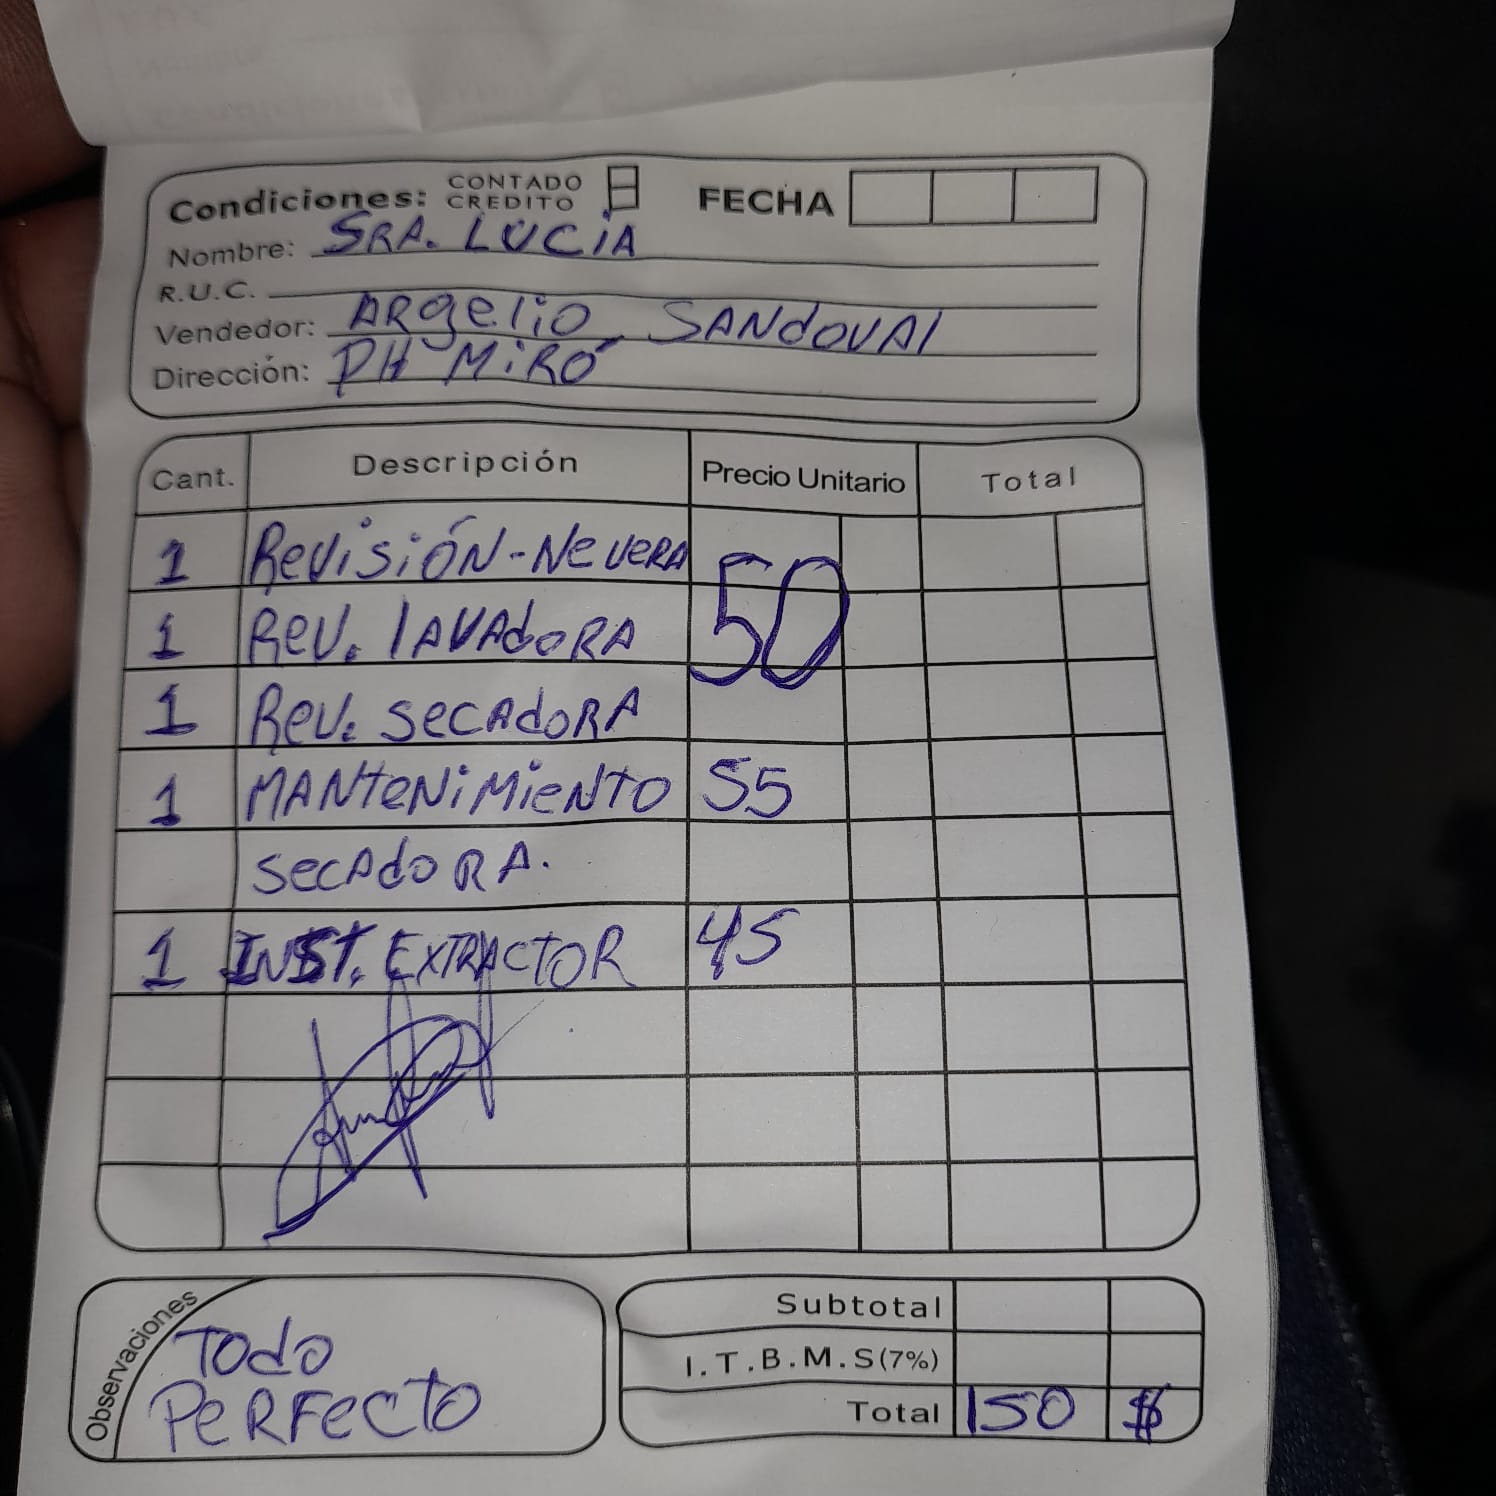 Condiciones: CONTADO CREDITO FECHA
Nombre: SRA. LUCiA
R.U.C.
Vendedor: ARgeliO SANdOVAl
Dirección: PH MiRÓ
Cant. Descripción Precio Unitario Total
1 ReViSiÓN - NeVERA 50
1 ReV. lAVAdoRA
1 ReV. SecAdoRA
1 MANteNiMieNTO 55
SecAdoRA.
1 INST. EXTRACTOR 45
Observaciones
Todo
PeRFecto
Subtotal
I.T.B.M.S(7%)
Total 150 $